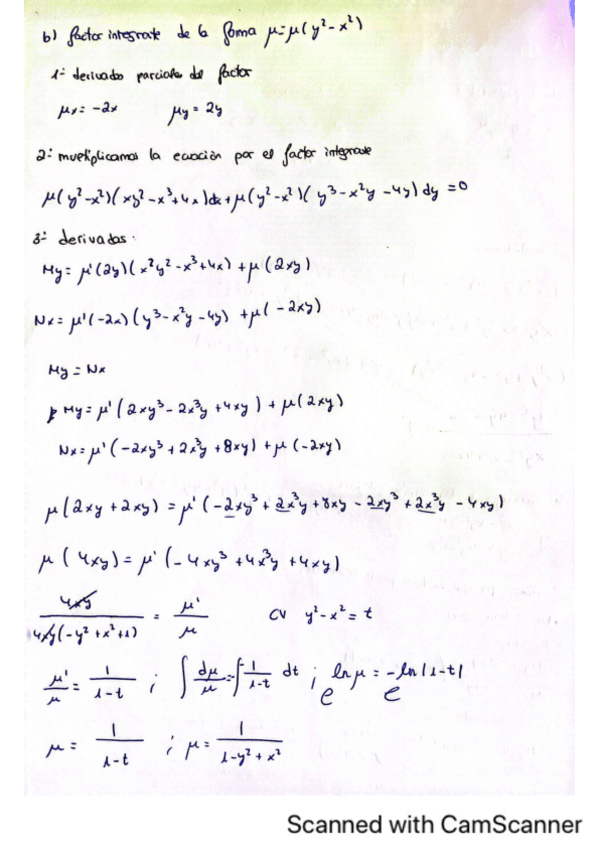 b) factor integrante de la forma μ=μ(y²-x²)
1º derivadas parciales del factor
μx = -2x μy = 2y
2º multiplicamos la ecuación por el factor integrante
μ(y²-x²)(xy²-x³+4x)dx+μ(y²-x²)(y³-x²y-4y)dy=0
3º derivadas:
My = μ'(2y)(x²y²-x³+4x)+μ(2xy)
Nx = μ'(-2x)(y³-x²y-4y)+μ(-2xy)
My = Nx
My = μ'(2xy³-2x³y+4xy)+μ(2xy)
Nx = μ'(-2xy³+2x³y+8xy)+μ(-2xy)
μ(2xy+2xy) = μ'(-2xy³+2x³y+8xy-2xy³+2x³y-4xy)
μ(4xy) = μ'(-4xy³+4x³y+4xy)
4xy/4xy(-y²+x²+1) = μ'/μ CV y²-x²=t
μ'/μ = 1/1-t ; ∫dμ/μ = ∫1/1-t dt ; e^lnμ = e^-ln|1-t|
μ = 1/1-t ; μ = 1/1-y²+x²
Scanned with CamScanner